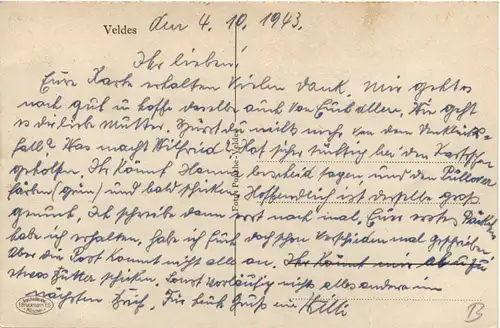 Veldes den 4. 10. 1943.
Ihr lieben!
Eure Karte erhalten Vielen Dank. Mir geht es
noch gut u hoffe dasselbe auch von Euch allen. Wie geht
es der liebe Mutter. Hörst du nichts mehr von dem
fall? Was macht Wilfried? Hat sicher tüchtig bei den
geholfen. Ihr könnt Hanna bescheid sagen und den Pullover
färben (grün) und bald schicken. Hoffendlich ist derselbe groß
genug. Ich schreibe dann erst noch mal. Euer erstes
habe ich erhalten, habe ich Euch doch schon verschieden mal geschrieben
Aber die Post kommt nicht alle an. Ihr könnt mir ab u zu
etwas schicken. Sonst vorläufig nichts alles andere im
nächsten Brief. Für heute Gruß euer Willi